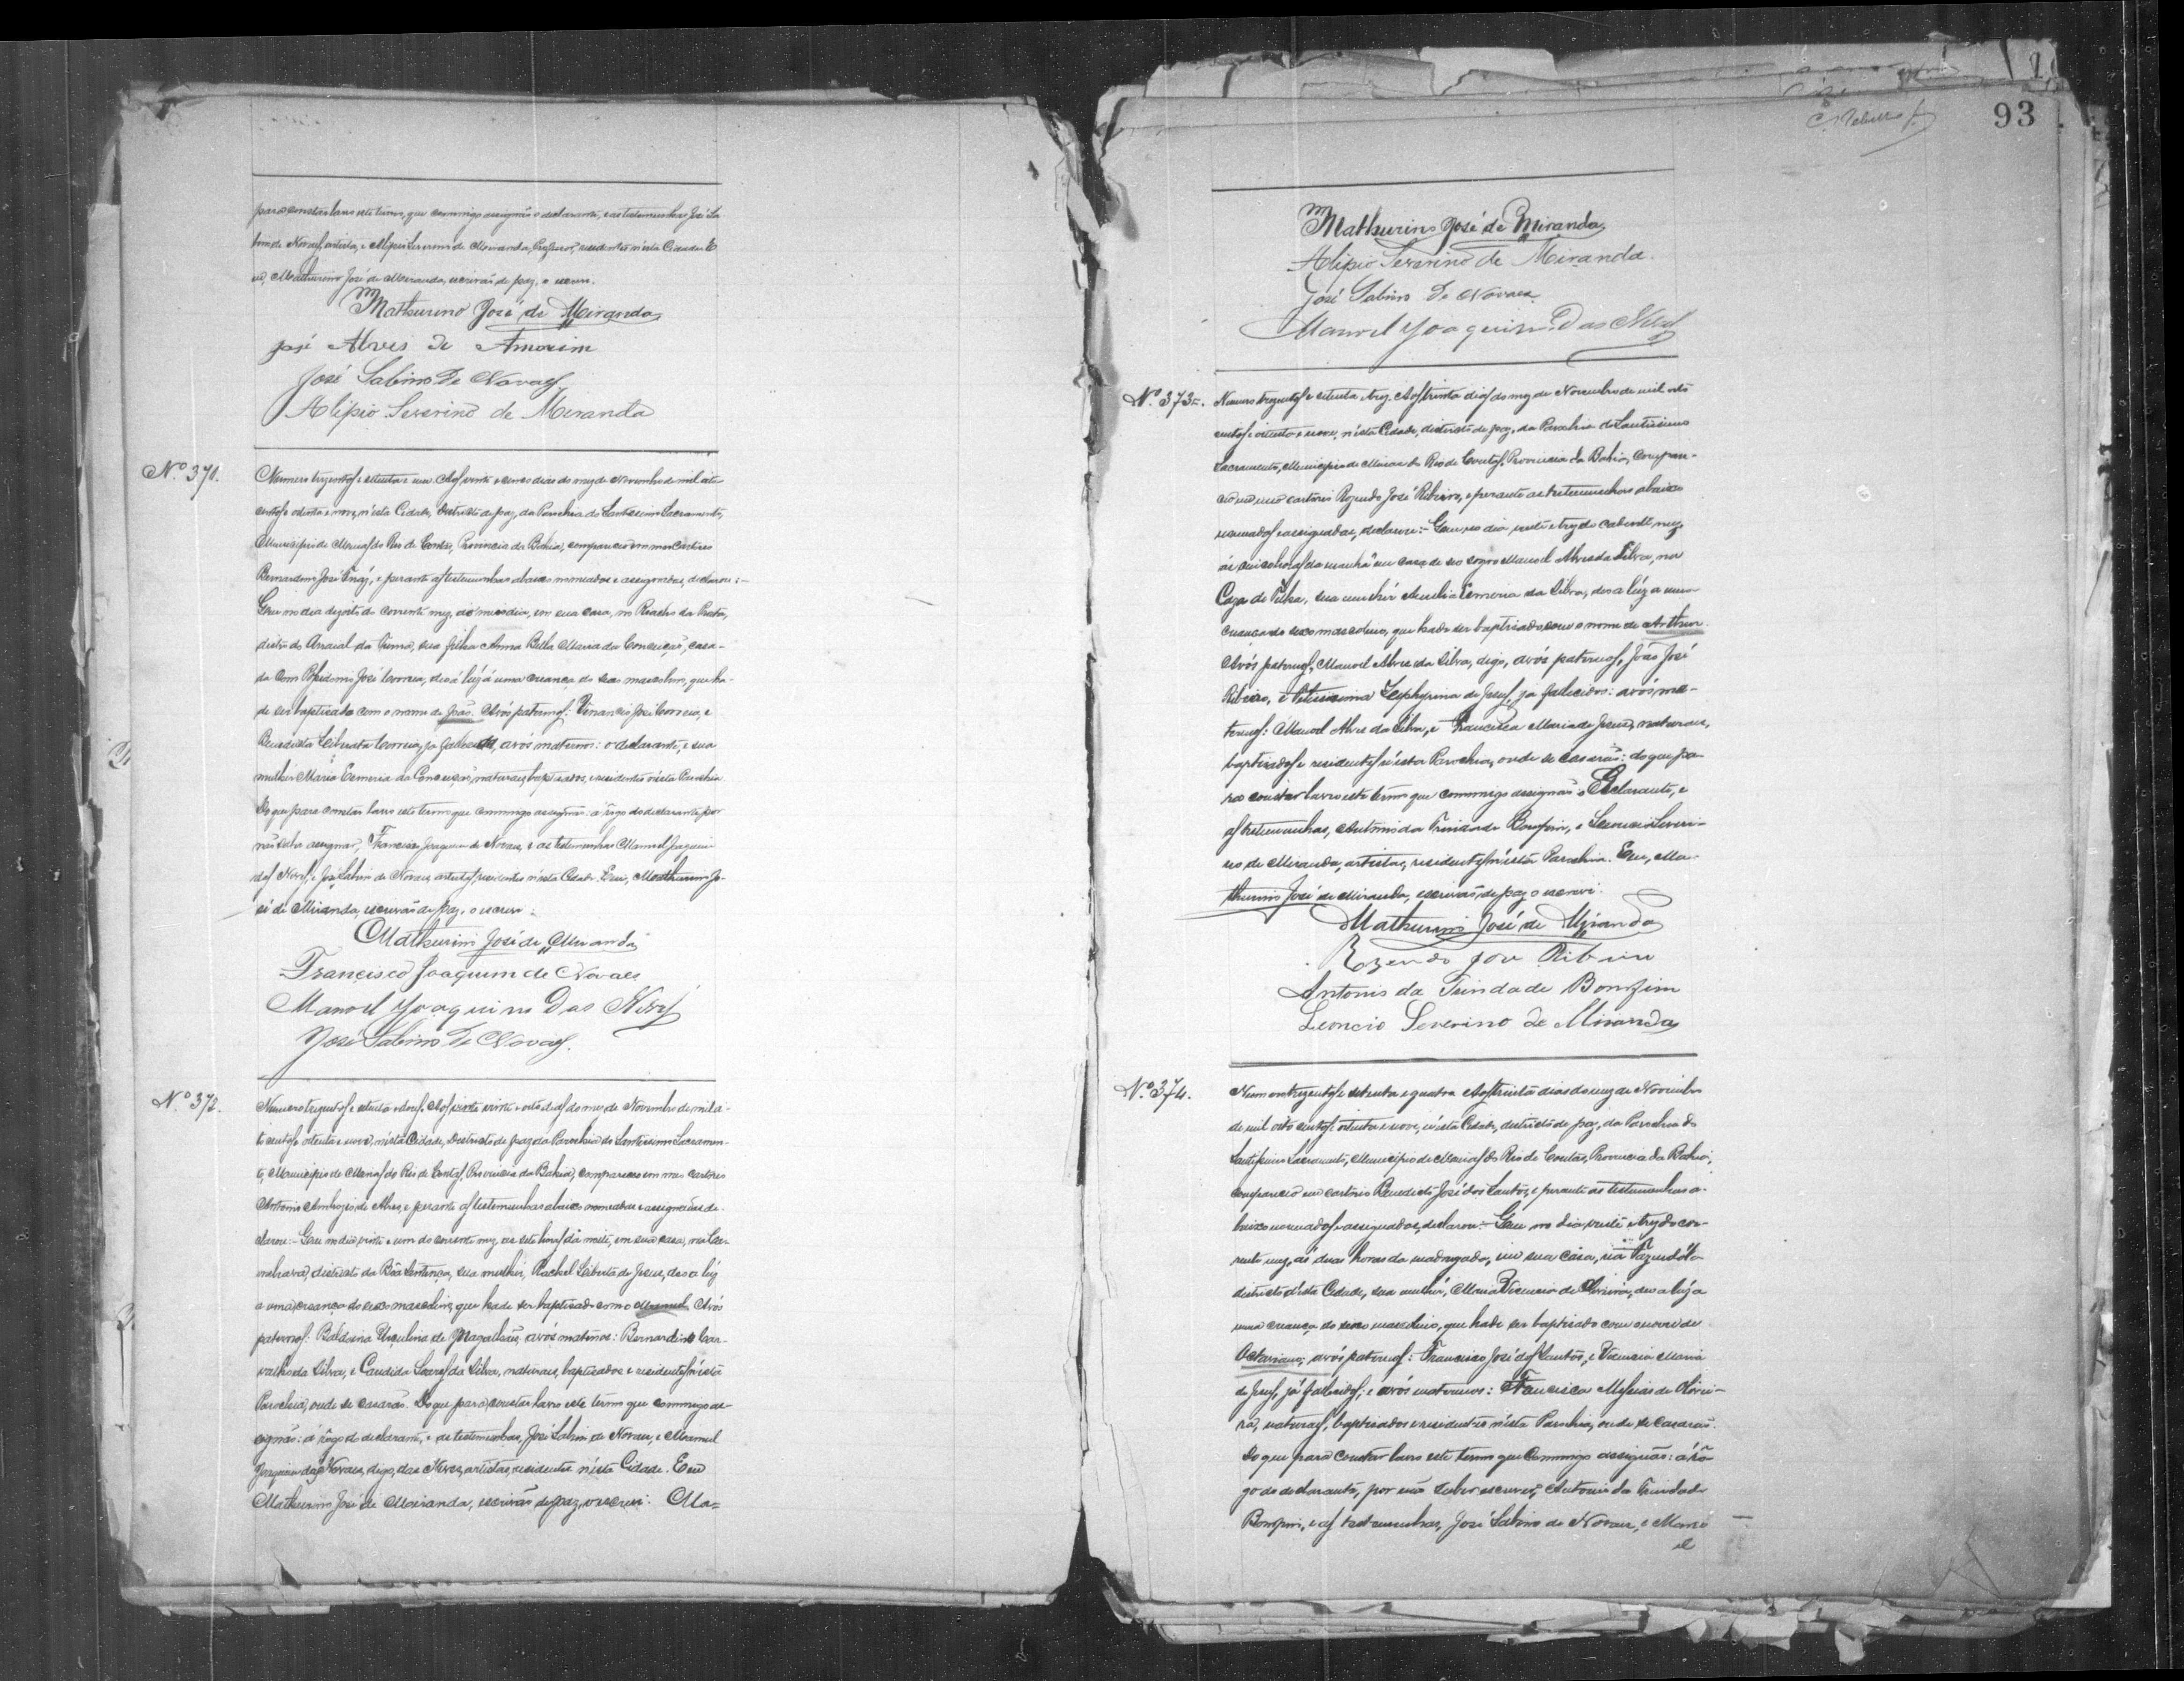 para constar lavro este termo, que commigo assignão o declarante, e as testemunhas José Sa
bino de Novaes, artista, e Alipio Severino de Miranda, Professor, residentes n'esta Cidade. E
eu, Mathurino José de Miranda, escrivão de paz, o escrevi.
Mathurino José de Miranda
José Alves de Amorim
José Sabino de Novaes
Alipio Severino de Miranda
Nº 371.
Numero trezentos e setenta e um. Aos vinte e cinco dias do mez de Novembro de mil oito
centos e oitenta e nove, n'esta Cidade, Districto de Paz, da Parochia do Santissimo Sacramento,
Municipio de Minas do Rio de Contas, Provincia da Bahia, compareceo em meu Cartorio
Bernardino José, e perante as testemunhas abaixo nomeadas e assignadas, declarou:-
Que no dia dezoito do corrente mez, ao meio dia, em sua casa, no Riacho da Prata,
districto do Arraial da Furna, sua filha Anna Bella Maria da Conceição, casa-
da com José Correia, deo á lúz á uma creança do sexo masculino, que ha-
de ser baptisado com o nome de João. Avós paternos: Venancio José Correia, e
Benedicta Liberata Correia, já, avós maternos: o declarante, e sua
mulher Maria Esmeria da Conceição, naturaes, baptisados, e residentes n'esta Parochia.
Do que para constar lavro este termo que commigo assignão: a rôgo do declarante por
não saber assignar, Francisco Joaquim de Novaes, e as testemunhas Manoel Joaquim
das Neves, e José Sabino de Novaes, artistas, residentes n'esta Cidade. Eu, Mathurino Jo-
sé de Miranda, escrivão de paz, o escrevi.
Mathurino José de Miranda
Francisco Joaquim de Novaes
Manoel Joaquim Das Neves
José Sabino de Novaes.
Nº 372.
Numero trezentos e setenta e dous. Aos vinte e oito dias do mez de Novembro de mil oi-
to centos e oitenta e nove, n'esta Cidade, Districto de paz da Parochia do Santissimo Sacramen-
to, Municipio de Minas do Rio de Contas, Provincia da Bahia, compareceo em meu cartorio
Antonio Ambrozio de Abreo, e perante as testemunhas abaixo nomeadas e assignadas de-
clarou:- Que no dia vinte e um do corrente mez, as sete horas da noite, em sua casa,
districto da Bôa Sentença, sua mulher, Rachel Liberta de Jesus, deo a lúz
a uma creança do sexo masculino, que hade ser baptisado com o Manoel. Avós
paternos: Urçulina de Magalhães, avós maternos: Bernardino Car-
valho da Silva, e Candida Soares da Silva, naturaes, baptisados e residentes n'esta
Parochia, onde se casarão. Do que para constar lavro este termo que commigo as-
signão: á rôgo do declarante, e as testemunhas, José Sabino de Novaes, e Manoel
Joaquim das Novaes, digo, das Neves, artistas, residentes n'esta Cidade. Eu
Mathurino José de Miranda, escrivão de paz, o escrevi. Ma=
93
Mathurino José de Miranda
Alipio Severino de Miranda.
José Sabino de Novaes
Manoel Joaquim Das Neves
Nº 373.
Numero trezentos e setenta e trez. Aos trinta dias do mez de Novembro de mil oito
centos e oitenta e nove, n'esta Cidade, districto de paz, da Parochia do Santissimo
Sacramento, Municipio de Minas do Rio de Contas, Provincia da Bahia, compare-
ceo em meu cartorio Rozendo José Ribeiro, e perante as testemunhas abaixo
nomeadas e assignadas, declarou:- Que no dia vinte e trez do mez,
ás horas da manhã em casa de seo sogro Manoel Alves da Silva, na
sua mulher Amelia Esmeria da Silva, deo a lúz a uma
creança do sexo masculino, que hade ser baptisado com o nome de Arthur.
Avós paternos, Manoel Alves da Silva, digo, avós paternos, João José
Ribeiro, e Zephyrina de Jesus, já fallecidos: avós ma-
ternos: Manoel Alves da Silva, e Francisca Maria de Jesus, naturaes,
baptisados e residentes n'esta Parochia, onde se casarão: do que pa-
ra constar lavro este termo que commigo assignão o Declarante, e
as testemunhas, Antonio da Trindade Bomfim, e Leoncio Severi-
no de Miranda, artistas, residentes n'esta Parochia. Eu, Ma-
thurino José de Miranda, escrivão de paz o escrevi.
Mathurino José de Miranda
Rozendo José Ribeiro
Antonio da Trindade Bomfim
Leoncio Severino de Miranda
Nº 374.
Numero trezentos e setenta e quatro. Aos trinta dias do mez de Novembro
de mil oito centos e oitenta e nove, n'esta Cidade, districto de paz, da Parochia do
Santissimo Sacramento, Municipio de Minas do Rio de Contas, Provincia da Bahia,
compareceo em cartorio Benedicto José dos Santos, e perante as testemunhas a-
baixo nomeadas e assignadas, declarou:- Que no dia vinte e trez do cor-
rente mez, ás duas horas da madrugada, em sua casa, na
districto d'esta Cidade, sua mulher, Maria Vicencia de Oliveira, deo a lúz a
uma creança do sexo masculino, que hade ser baptisado com o nome de
Octaviano; avós paternos: Francisco José dos Santos, e Vicencia Maria
de Jesus, já fallecidos; e avós maternos: Francisca Messias de Olivei-
ra, naturaes, baptisados e residentes n'esta Parochia, onde se casarão.
Do que para constar lavro este termo que commigo assignão: á rô
go do declarante, por não saber escrever, Antonio da Trindade
Bomfim, e as testemunhas, José Sabino de Novaes, e Mano
el